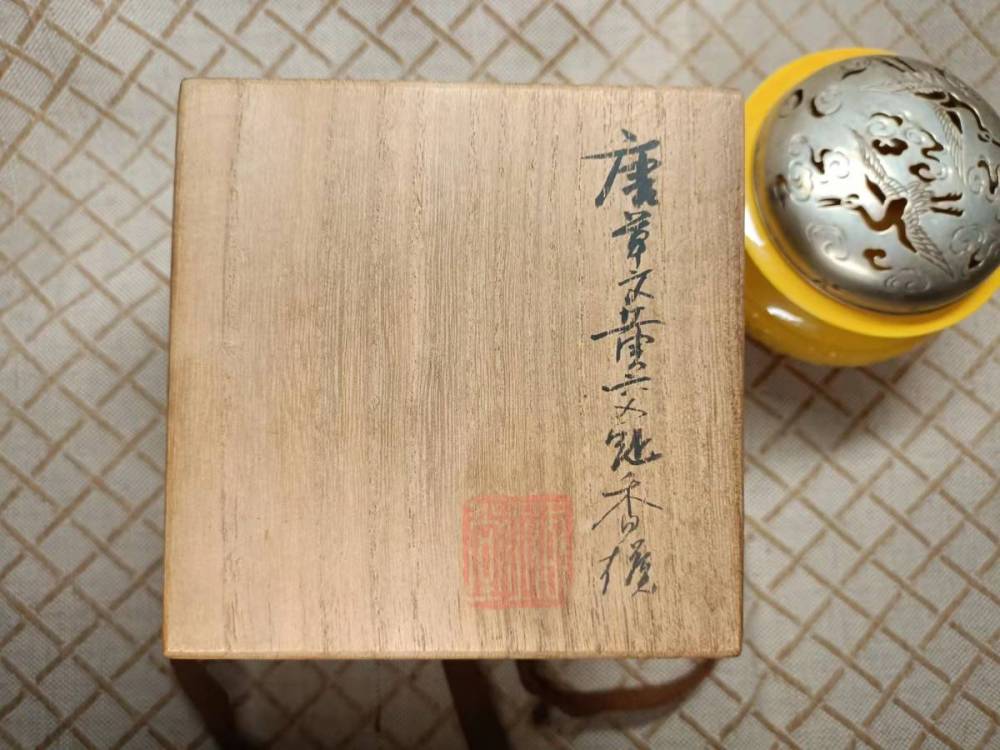 唐草文黄交趾香爐